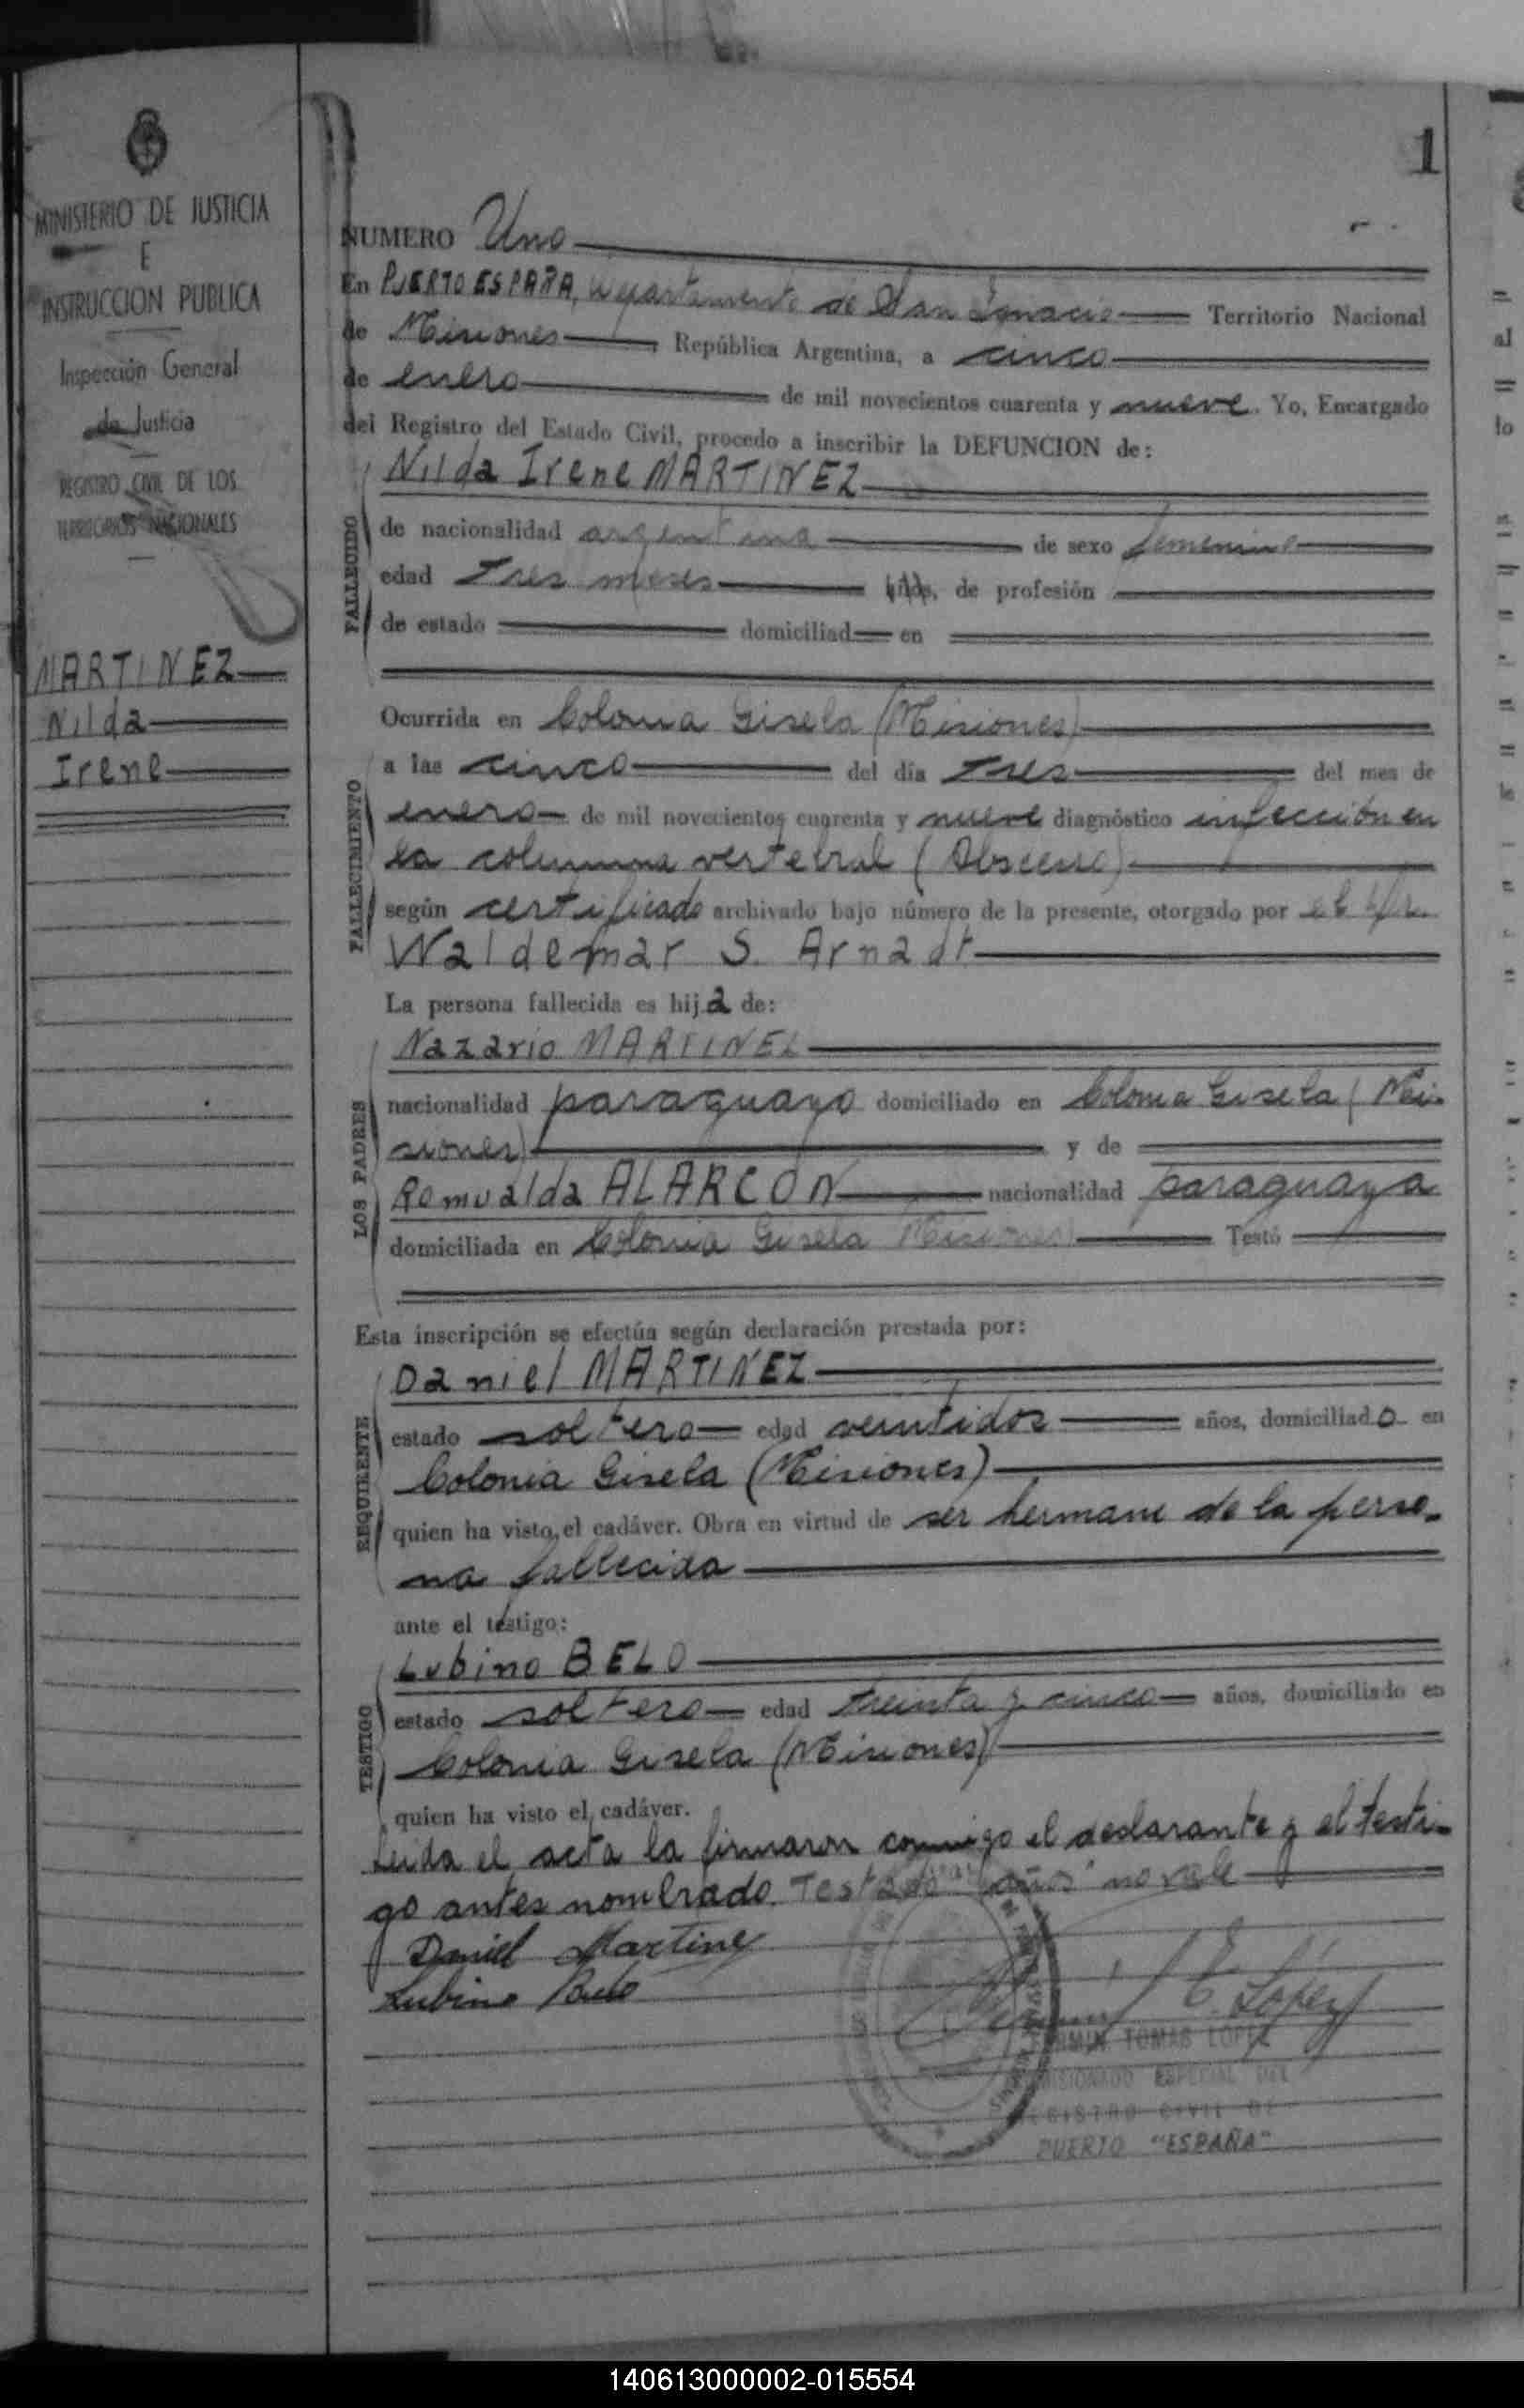 MINISTERIO DE JUSTICIA
E
INSTRUCCION PUBLICA
Inspección General
de Justicia
REGISTRO CIVIL DE LOS
TERRITORIOS NACIONALES
MARTINEZ
Nilda
Irene
1
NUMERO Uno
En PUERTO ESPAÑA, Departamento de San Ignacio Territorio Nacional
de Misiones, República Argentina, a cinco
de enero de mil novecientos cuarenta y nueve. Yo, Encargado
del Registro del Estado Civil, procedo a inscribir la DEFUNCION de:
FALLECIDO
Nilda Irene MARTINEZ
de nacionalidad argentina de sexo femenino
edad tres meses años, de profesión
de estado domiciliad en
FALLECIMIENTO
Ocurrida en Colonia Gisela (Misiones)
a las cinco del día tres del mes de
enero de mil novecientos cuarenta y nueve diagnóstico infección en
la columna vertebral (Absceso)
según certificado archivado bajo número de la presente, otorgado por el
Waldemar S. Arnadt
La persona fallecida es hija de:
LOS PADRES
Nazario MARTINEZ
nacionalidad paraguayo domiciliado en Colonia Gisela (Mi-
siones) y de
Romualda ALARCON nacionalidad paraguaya
domiciliada en Colonia Gisela Misiones) Testó
Esta inscripción se efectúa según declaración prestada por:
REQUIRENTE
Daniel MARTINEZ
estado soltero edad veintidos años, domiciliado en
Colonia Gisela (Misiones)
quien ha visto el cadáver. Obra en virtud de ser hermano de la perso-
na fallecida
ante el testigo:
TESTIGO
Lubino BELO
estado soltero edad treinta y cinco años, domiciliado en
Colonia Gisela (Misiones)
quien ha visto el cadáver.
Leida el acta la firmaron conmigo el declarante y el testi-
go antes nombrado. Testado "años" no vale
Daniel Martinez
Lubino Belo
T. López
FERMIN TOMAS LOPEZ
COMISIONADO ESPECIAL DEL
REGISTRO CIVIL DE
PUERTO "ESPAÑA"
140613000002-015554